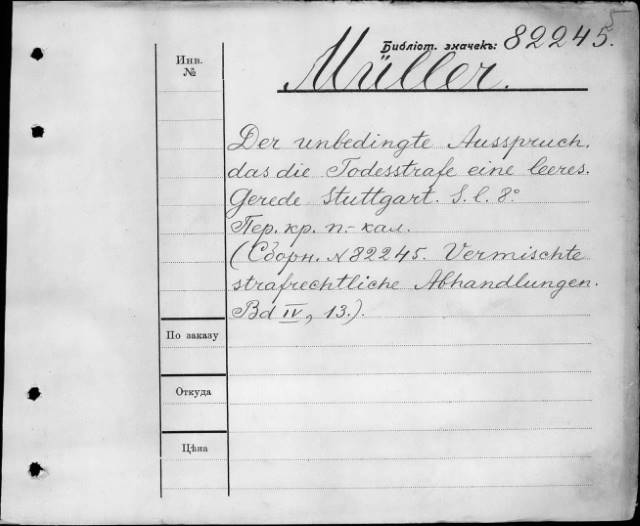 Библіот. значекъ: 82245.
Инв. №
Müller.
Der unbedingte Ausspruch,
das die Todesstrafe eine leeres.
Gerede Stuttgart. S. l. 8º
Пер. кр. п.- кал.
(Сборн. № 82245. Vermischte
strafrechtliche Abhandlungen.
Bd IV, 13.).
По заказу
Откуда
Цѣна